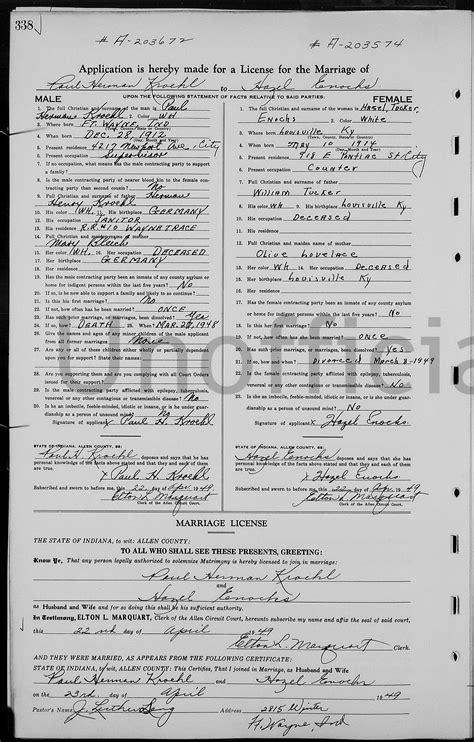 338
# A-203672 # A-203574
Application is hereby made for a License for the Marriage of
Paul Herman Kroehl to Hazel Enochs
MALE UPON THE FOLLOWING STATEMENT OF FACTS RELATIVE TO SAID PARTIES: FEMALE
1. The full Christian and surname of the man is Paul
Herman Kroehl 2. Color WH
3. Where born FT. WAYNE, IND
(Town, County, State or Country)
4. When born DEC. 28 1912
(Day, Month and Year)
5. Present residence 4217 Newport Ave, City
6. Present occupation Supervisor
7. If no occupation, what means has the male contracting party to support
a family?
8. Is the male contracting party nearer of blood kin to the female con-
tracting party than second cousin? No
9. Full Christian and surname of father Herman
Henry Kroehl
10. His color WH. 11. His birthplace GERMANY
12. His occupation JANITOR
13. His residence R.R.#10 WAYNE TRACE
14. Full Christian and maiden name of mother
Mary
15. Her color WH. 16. Her occupation DECEASED
17. Her birthplace GERMANY
18. Her residence
19. Has the male contracting party been an inmate of any county asylum or
home for indigent persons within the last five years? No
20. If so, is he now able to support a family and likely to so continue?
21. Is this his first marriage? No
22. If not, how often has he been married? ONCE
23. Has such prior marriage, or marriages, been dissolved? Yes
24. If so, how? DEATH 25. When? MAR. 20, 1948
Give the names and ages of any minor children of the male applicant
from all former marriages None
Are you or all of these children either wholly or partially dependent
upon you for support? State their names
Are you supporting them and are you complying with all Court Orders
issued for their support?
Is the male contracting party afflicted with epilepsy, tuberculosis,
venereal or any other contagious or transmissible disease? No
Is he an imbecile, feeble-minded, idiotic or insane, or is he under guar-
dianship as a person of unsound mind? No
Signature of applicant x Paul H. Kroehl
STATE OF INDIANA, ALLEN COUNTY, SS:
Paul H. Kroehl deposes and says that he has
personal knowledge of the facts above stated and that they and each of
them are true.
x Paul H. Kroehl
Subscribed and sworn to before me, this 22 day of Apr 1949
Elton L. Marquart
Clerk of the Allen Circuit Court.
1. The full Christian and surname of the woman is Hazel, Tucker,
Enochs 2. Color White
3. Where born Louisville Ky
(Town, County, State or Country)
4. When born May 10 1914
(Day, Month and Year)
5. Present residence 918 E Pontiac St City
6. Present occupation Counter
7. Full Christian and surname of father
William Tucker
8. His color wh 9. His birthplace Louisville Ky
10. His occupation Deceased
11. His residence
12. Full Christian and maiden name of mother
Olive Lovelace
13. Her color Wh 14. Her occupation Deceased
15. Her birthplace Louisville Ky
16. Her residence
Has the female contracting party been an inmate of any county asylum
or home for indigent persons within the last five years? No
18. Is this her first marriage? No
19. If not, how often has she been married? once
20. Has such prior marriage, or marriages, been dissolved? Yes
21. If so, how and when? Divorced March 2-1949
22. Is the female contracting party afflicted with epilepsy, tuberculosis,
venereal or any other contagious or transmissible disease? No
Is she an imbecile, feeble-minded, idiotic or insane, or is she under
guardianship as a person of unsound mind? No
Signature of applicant x Hazel Enochs
STATE OF INDIANA, ALLEN COUNTY, SS:
Hazel Enochs deposes and says that she has
personal knowledge of the facts above stated and that they and each
of them are true.
x Hazel Enochs
Subscribed and sworn to before me, this 22 day of Apr, 1949
Elton L. Marquart
Clerk of the Allen Circuit Court.
Unofficia
MARRIAGE LICENSE
THE STATE OF INDIANA, to wit: ALLEN COUNTY:
TO ALL WHO SHALL SEE THESE PRESENTS, GREETING:
Know Ye, That any person legally authorized to solemnize Matrimony is hereby licensed to join in marriage:
Paul Herman Kroehl
and
Hazel Enochs
as Husband and Wife and for so doing this shall be his sufficient authority.
In Testimony, ELTON L. MARQUART, Clerk of the Allen Circuit Court, hereunto subscribe my name and affix the seal of said court,
this 22nd day of April 1949
Elton L. Marquart Clerk.
AND THEY WERE MARRIED, AS APPEARS FROM THE FOLLOWING CERTIFICATE:
STATE OF INDIANA, To wit, ALLEN COUNTY: This Certifies, That I joined in Marriage, as Husband and Wife
Paul Herman Kroehl and Hazel Enochs
on the 23rd. day of April 1949
Pastor's Name J. Luther Seng Address 2815 Winter
Ft. Wayne, Ind